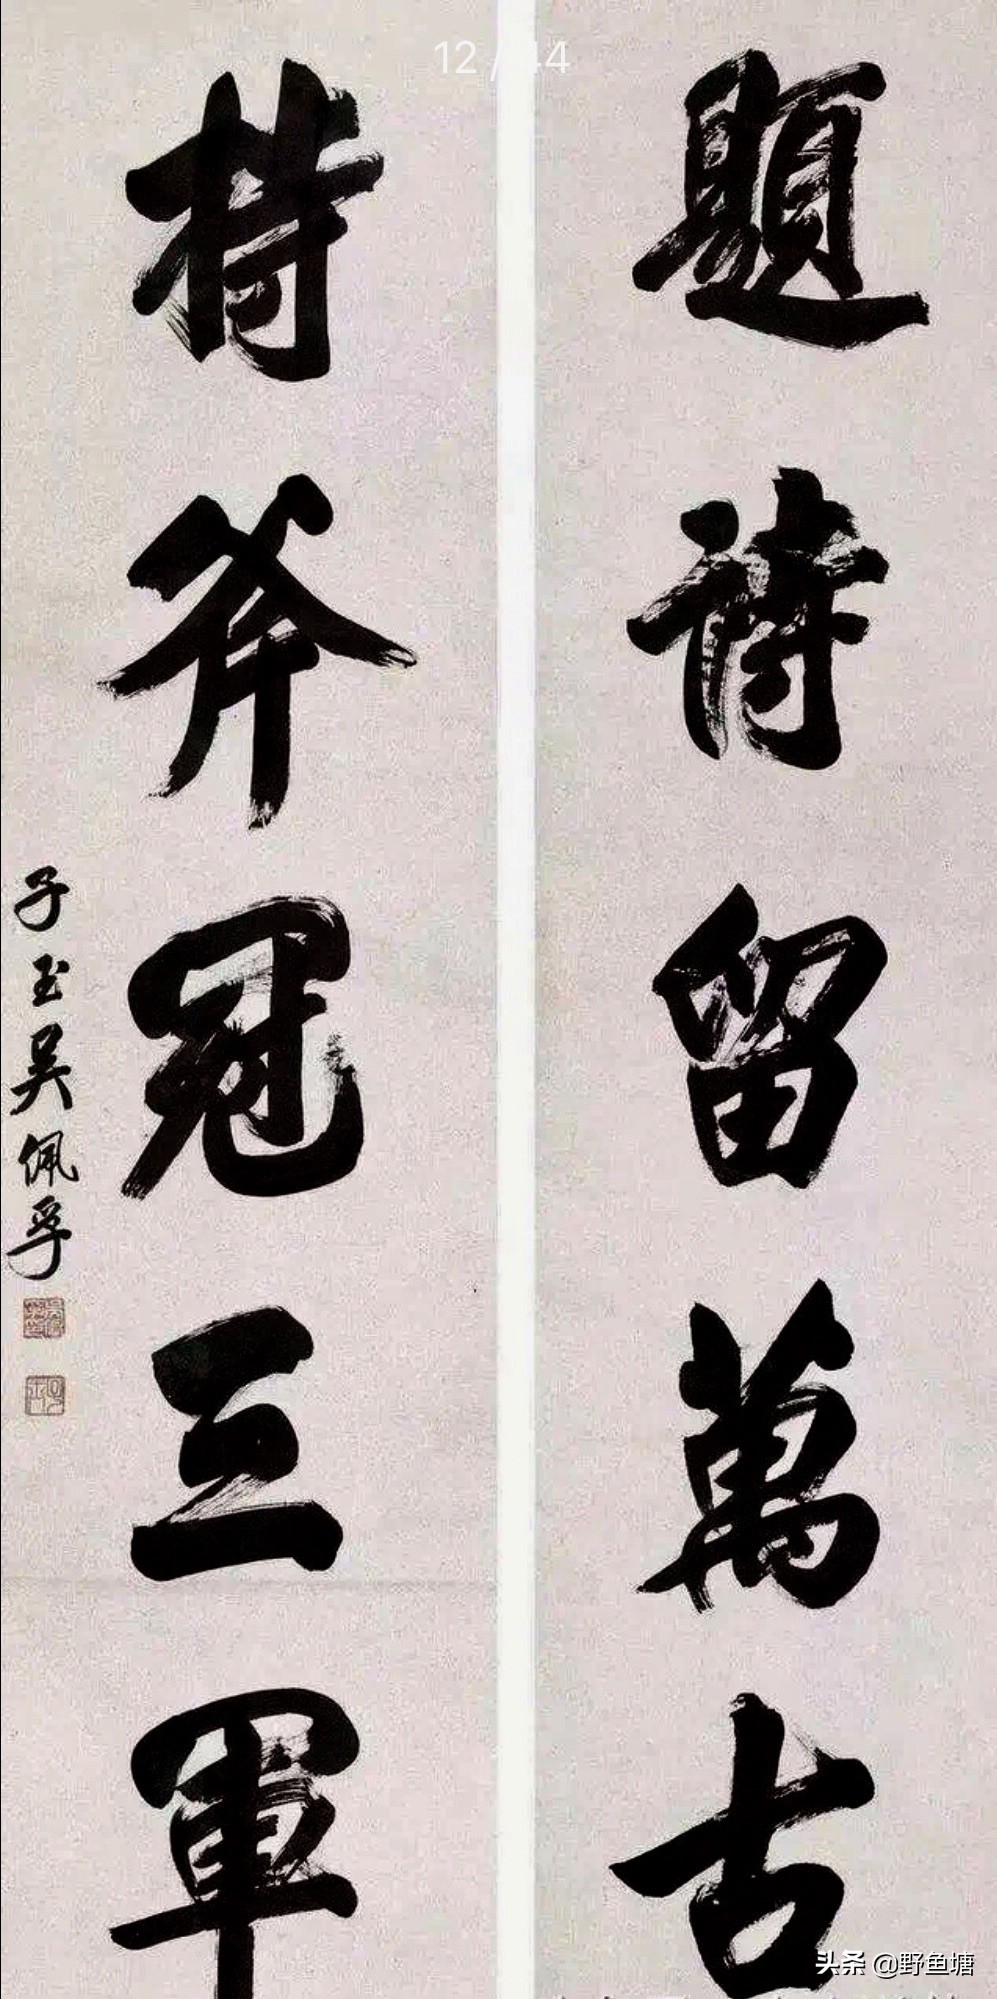 12 / 44
題詩留萬古
持斧冠三軍
子玉吳佩孚
头条 @野鱼塘